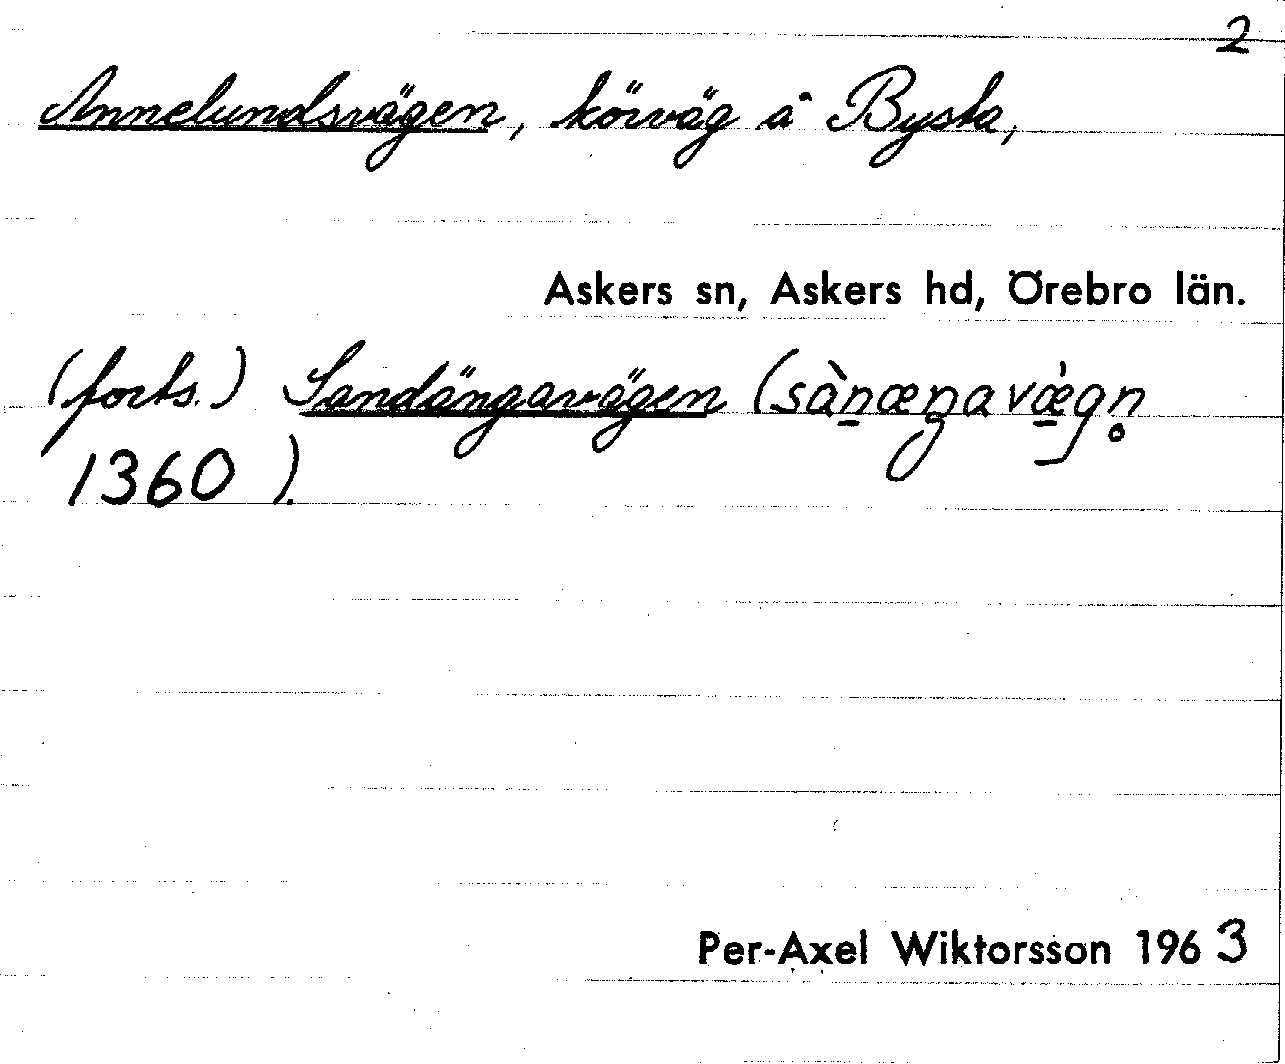 2
Annelundsvägen, körväg å Bysta,
Askers sn, Askers hd, Örebro län.
(forts.) Sandängavägen (sàn̠æŋavæ̠̀gn̥
1360).
Per-Axel Wiktorsson 1963